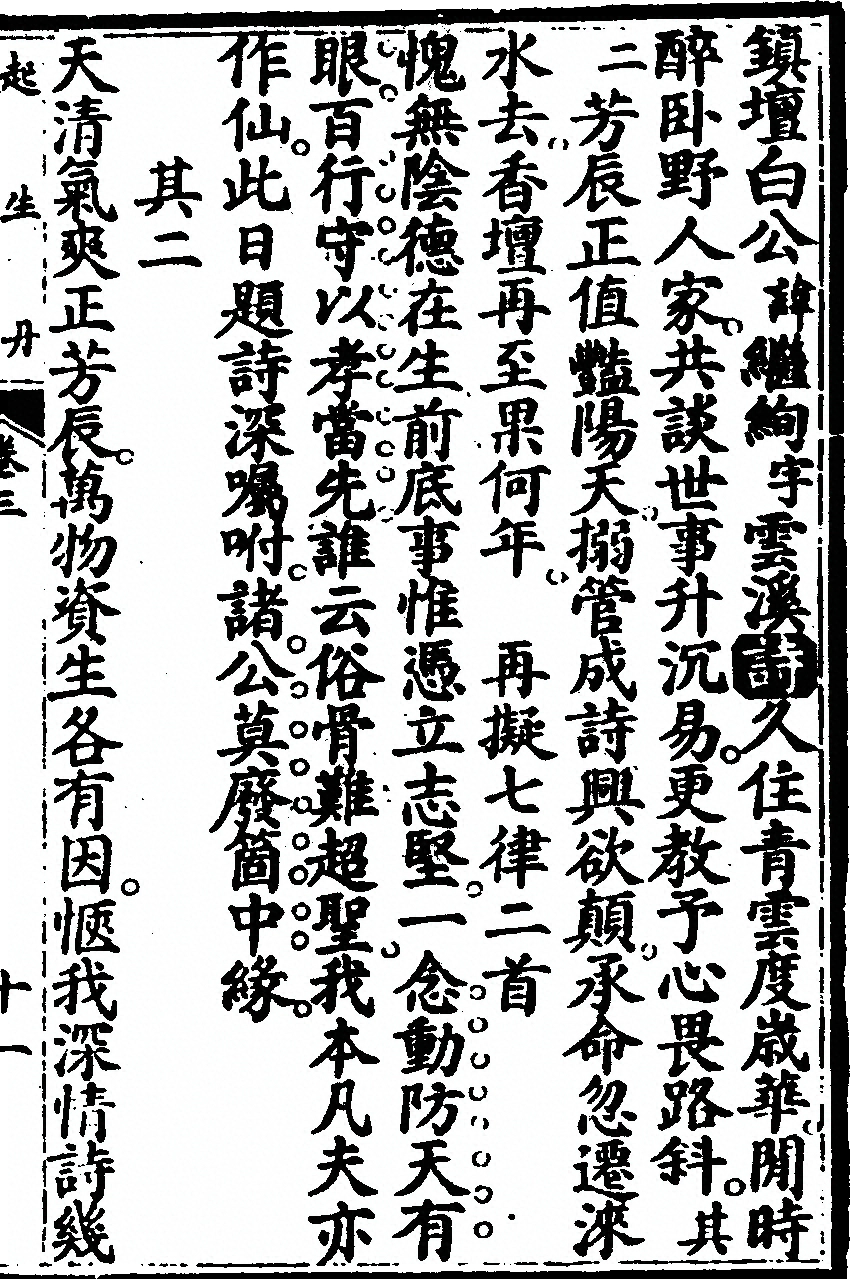 鎮壇白公諱繼絢字雲溪詩久住青雲度歲華閒時
醉卧野人家共談世事升沉易更教予心畏路斜其
二芳辰正值豔陽天搦管成詩興欲顛承命忽遷淶
水去香壇再至果何年 再擬七律二首
愧無陰德在生前底事惟憑立志堅一念動防天有
眼百行守以孝當先誰云俗骨難超聖我本凡夫亦
作仙此日題詩深囑咐諸公莫廢箇中緣
其二
天清氣爽正芳辰萬物資生各有因愜我深情詩幾
起生丹 卷三 十一